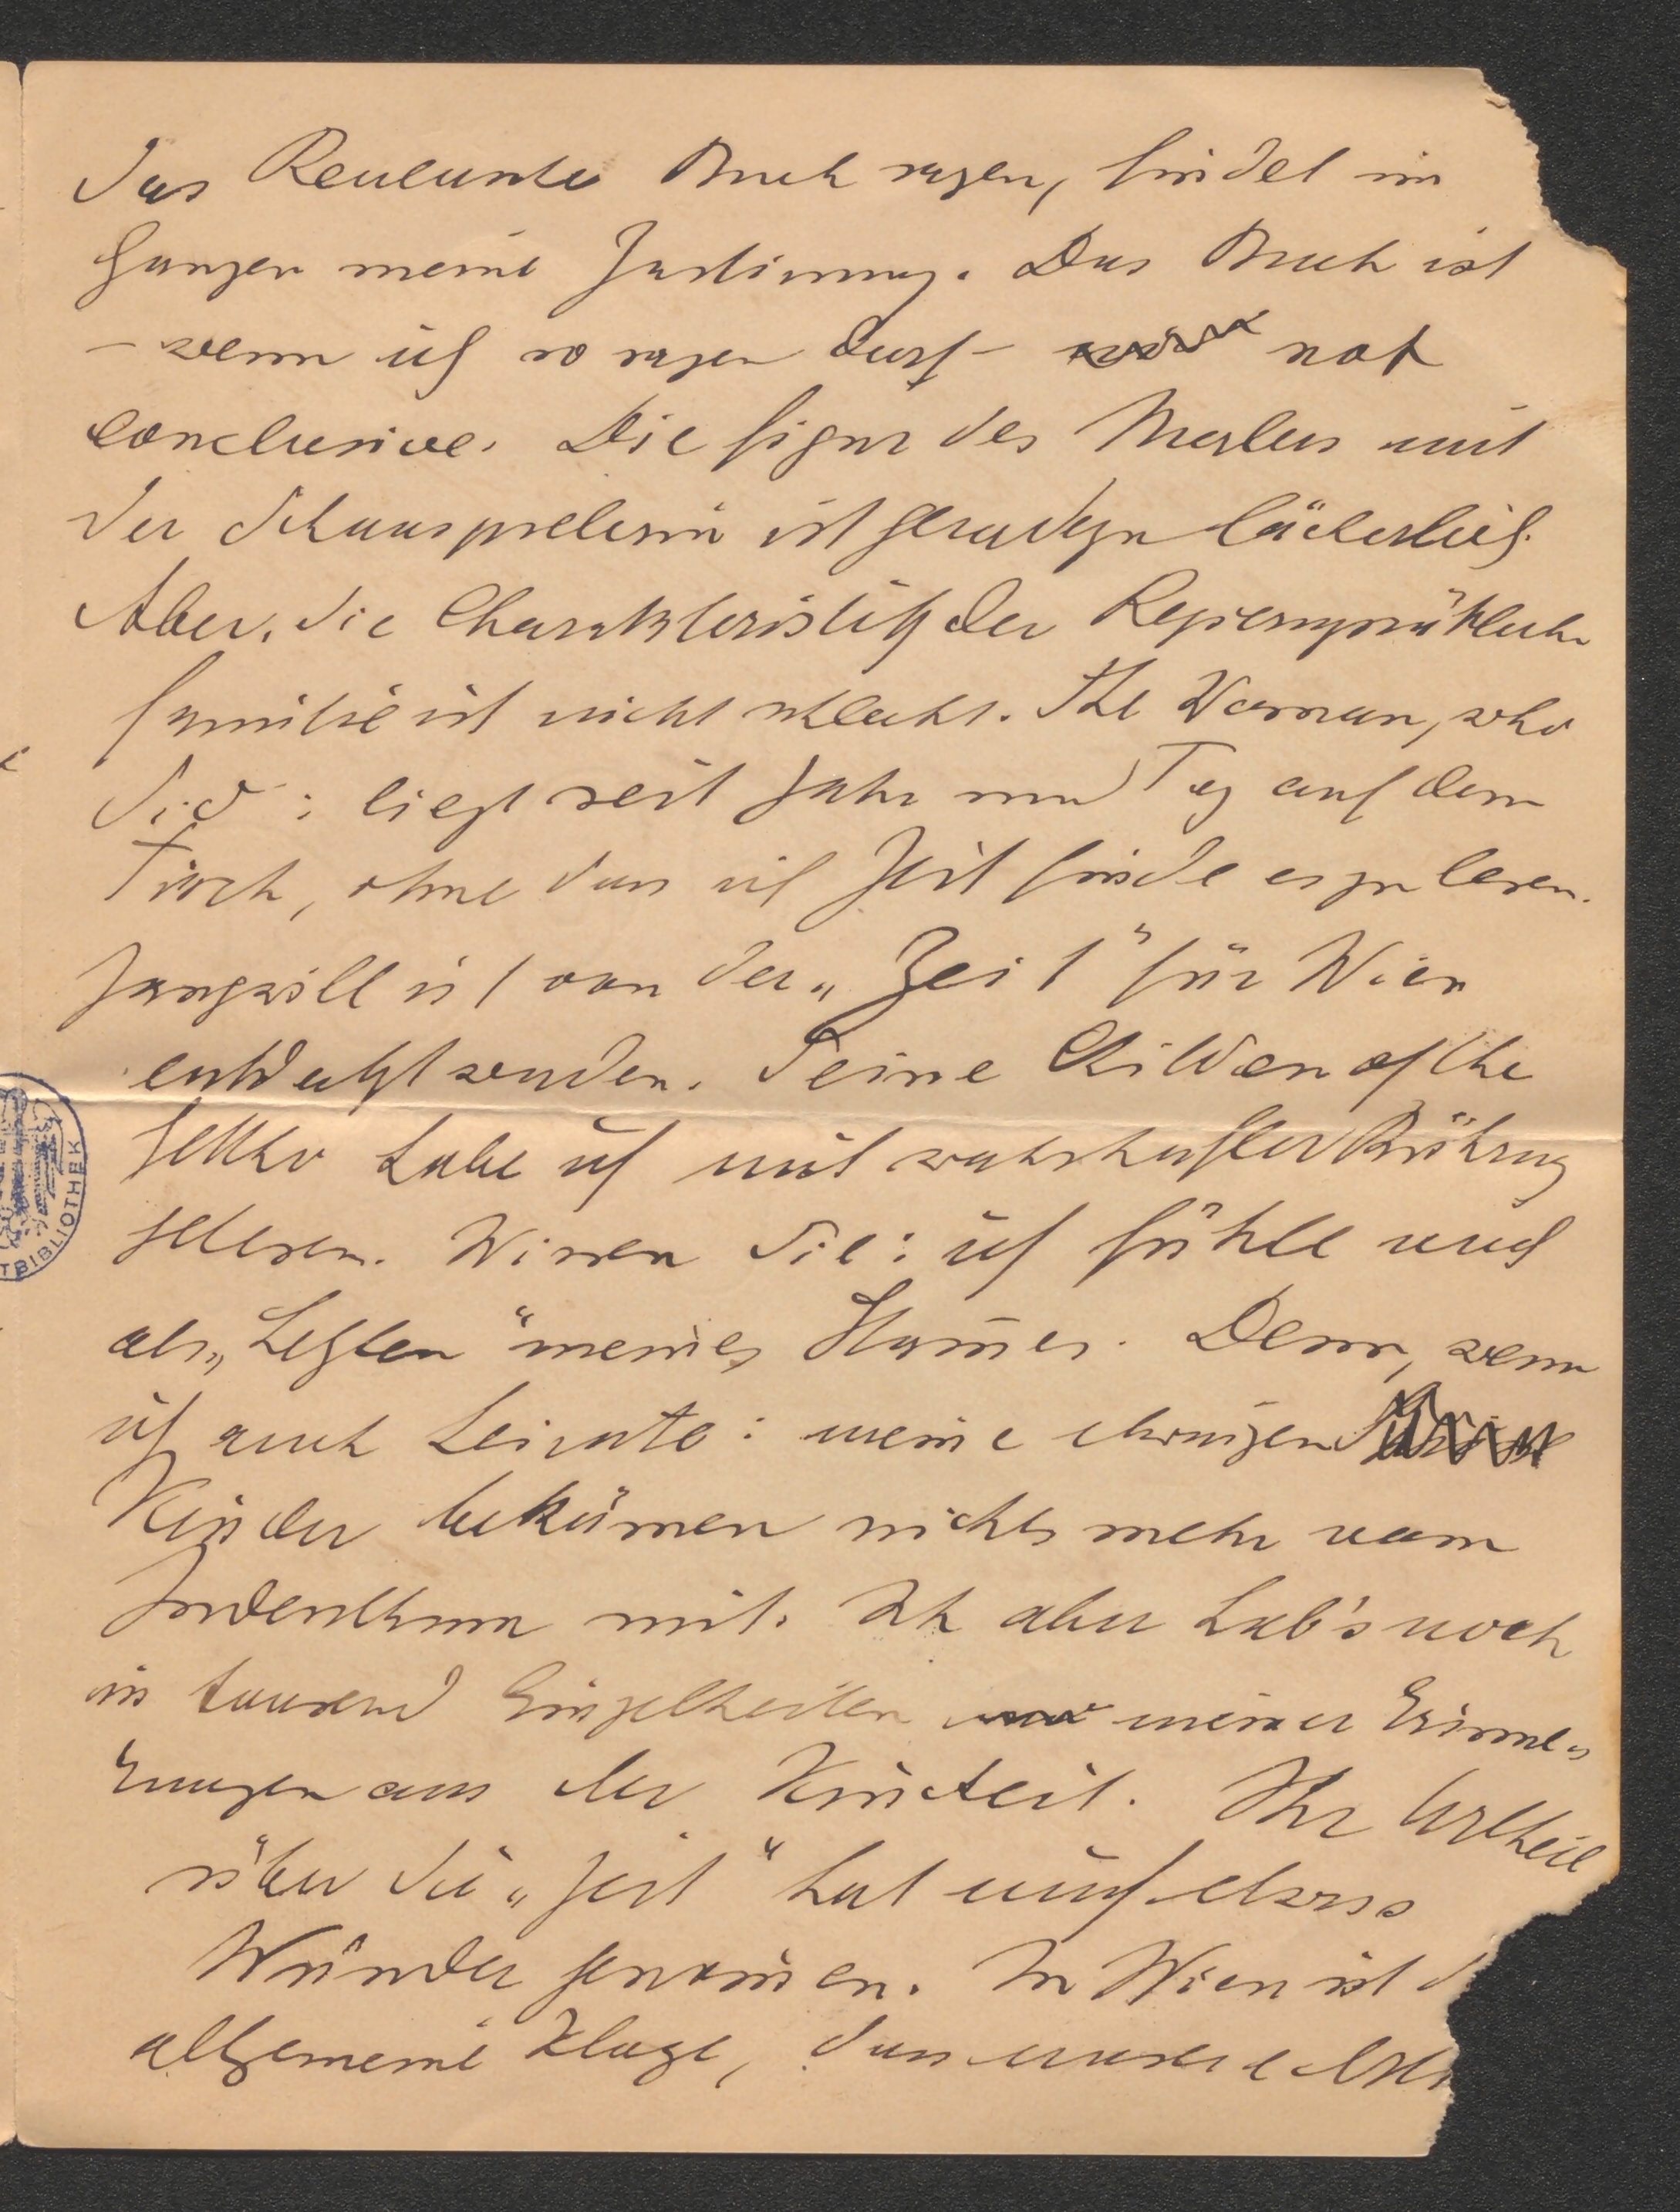 das Buch sagen, findet im
Ganzen meine Zustimmung. Das Buch ist
– wenn ich so sagen darf – not
conclusive. Die Figur des Malers mit
der Schauspielerin ist geradezu lächerlich.
Aber, die Charakteristik der
Familie ist nicht schlecht. The Woman, who
did: liegt seit Jahr und Tag auf dem
Tisch, ohne dass ich Zeit finde es zu lesen.
Zangwill ist von der „Zeit" für Wien
entdeckt worden. Seine Children of the
Ghetto habe ich mit wahrhafter Rührung
gelesen. Wissen Sie: ich fühle mich
als „Letzten" meines Stam̄es. Denn, wenn
ich auch heirate: meine etwaigen
Kinder bekom̄en nichts mehr vom
Judenthum mit. Ich aber hab's noch
in tausend Einzelheiten meiner Erinne-
rungen aus der Kindheit. Ihr Urtheil
über die „Zeit" hat mich etwas
Wunder genom̄en. In Wien ist d
allgemeine Klage, dass unsere
BIBLIOTHEK